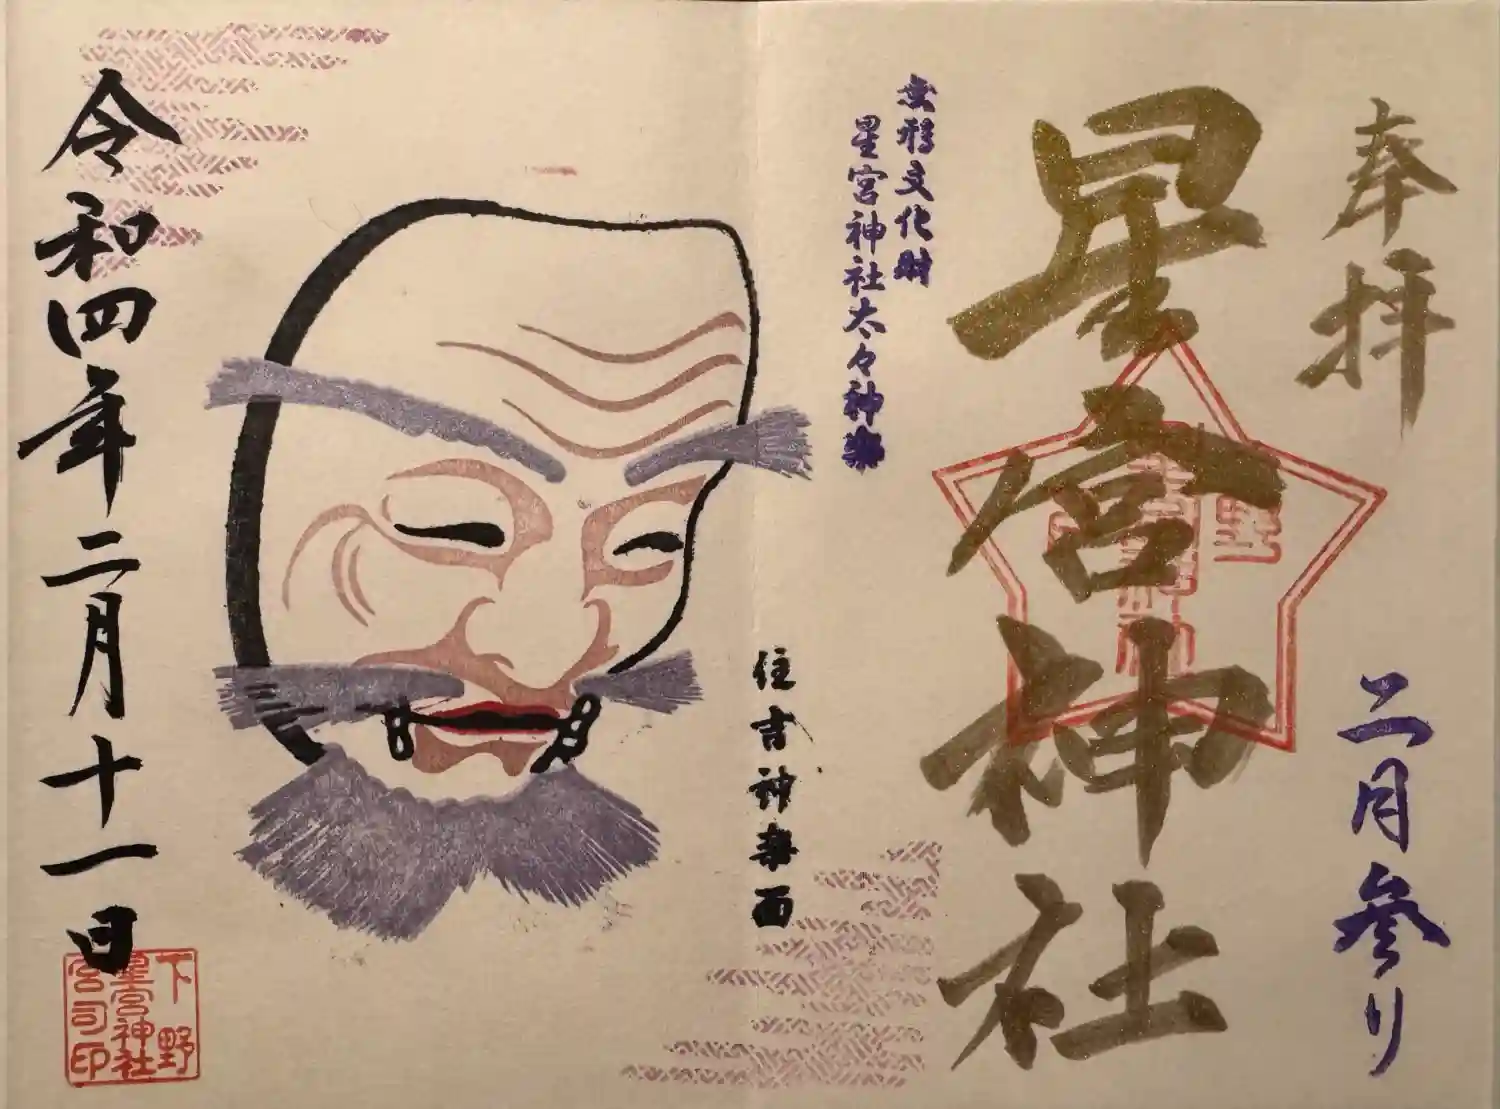 奉拝
二月参り
星宮神社
無形文化財
星宮神社太々神楽
住吉神楽面
令和四年二月十一日
下野
星宮神社
宮司印